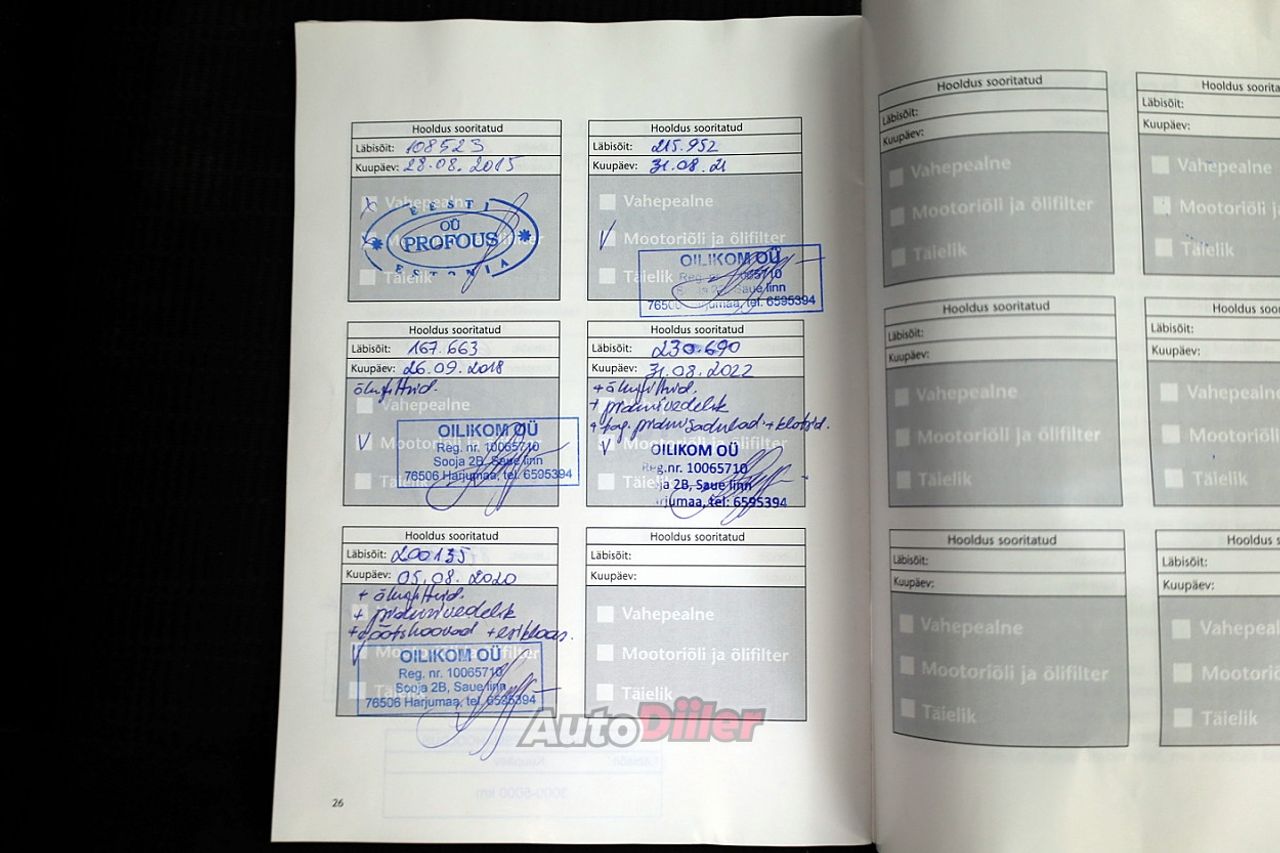 Hooldus sooritatud
Läbisõit: 108523
Kuupäev: 28.08.2015
Vahepealne
EESTI
OÜ
PROFOUS
ESTONIA
Täielik
Hooldus sooritatud
Läbisõit: 215.952
Kuupäev: 31.08.21
Vahepealne
Mootoriõli ja õlifilter
Täielik
OILIKOM OÜ
Reg. nr. 10065710
Sooja 2B, Saue linn
76506 Harjumaa, tel. 6595394
Hooldus sooritatud
Läbisõit: 167.663
Kuupäev: 26.09.2018
Vahepealne
OILIKOM OÜ
Reg. nr. 10065710
Sooja 2B, Saue linn
76506 Harjumaa, tel. 6595394
Hooldus sooritatud
Läbisõit: 230.690
Kuupäev: 31.08.2022
+ pidurivedelik
+ tag. pidurisadulad + klotsid.
OILIKOM OÜ
Reg.nr. 10065710
ja 2B, Saue linn
arjumaa, tel: 6595394
Hooldus sooritatud
Läbisõit: 200135
Kuupäev: 05.08.2020
+ pidurivedelik
+ esiklaas.
OILIKOM OÜ
Reg. nr. 10065710
Sooja 2B, Saue linn
76506 Harjumaa, tel. 6595394
Hooldus sooritatud
Läbisõit:
Kuupäev:
Vahepealne
Mootoriõli ja õlifilter
Täielik
AutoDiiler
26
Hooldus sooritatud
Läbisõit:
Kuupäev:
Vahepealne
Mootoriõli ja õlifilter
Täielik
Hooldus soorita
Läbisõit:
Kuupäev:
Vahepealne
Mootoriõli
Täielik
Hooldus sooritatud
Läbisõit:
Kuupäev:
Vahepealne
Mootoriõli ja õlifilter
Täielik
Hooldus soo
Läbisõit:
Kuupäev:
Vahepealne
Mootoriõli
Täielik
Hooldus sooritatud
Läbisõit:
Kuupäev:
Vahepealne
Mootoriõli ja õlifilter
Täielik
Hooldus s
Läbisõit:
Kuupäev:
Vahepeal
Mootoriõ
Täielik